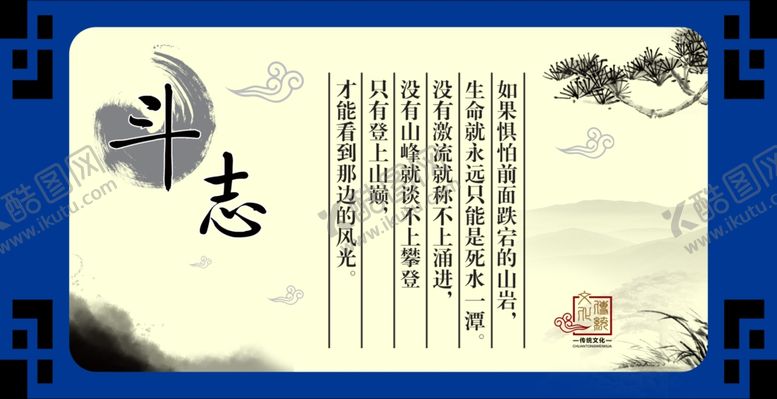 斗志
如果惧怕前面跌宕的山岩，
生命就永远只能是死水一潭。
没有激流就称不上涌进，
没有山峰就谈不上攀登
只有登上山巅，
才能看到那边的风光。
文化
傳統
传统文化
CHUANTONGWENHUA
酷图网
www.ikutu.com